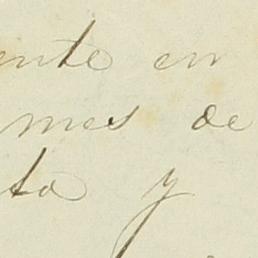 ente en
mes de
ta y